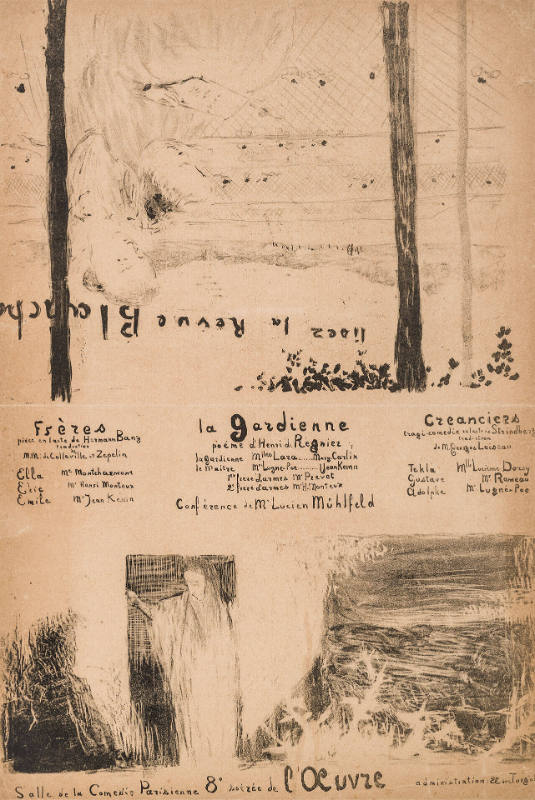 lisez la Revue Blanche
Frères
pièce en 1 acte de Hermann Bang
traduction
M.M. de Colleville et Zepelin
Ella Me Montcharmont
Eric Mr Henri Monteux
Emile Mr Jean Kemm
la gardienne
poème d'Henri de Regnier
la gardienne Mlles Lara......Mary Carlix
le Maître Mr Lugné-Poe......Jean Kemm
1er frère d'armes Mr Prévot
2e frère d'armes Mr H. Monteux
Conférence de Mr Lucien Mühlfeld
Creanciers
tragi-comedie en 1 acte de Steindberg
traduction
de M. Georges Loiseau
Tekla Mlle Lucienne Dorsy
Gustave Mr Rameau
Adolphe Mr Lugne-Poe
Salle de la Comedie Parisienne 8e soirée de l'Œuvre
administration: 22 rue Turgot